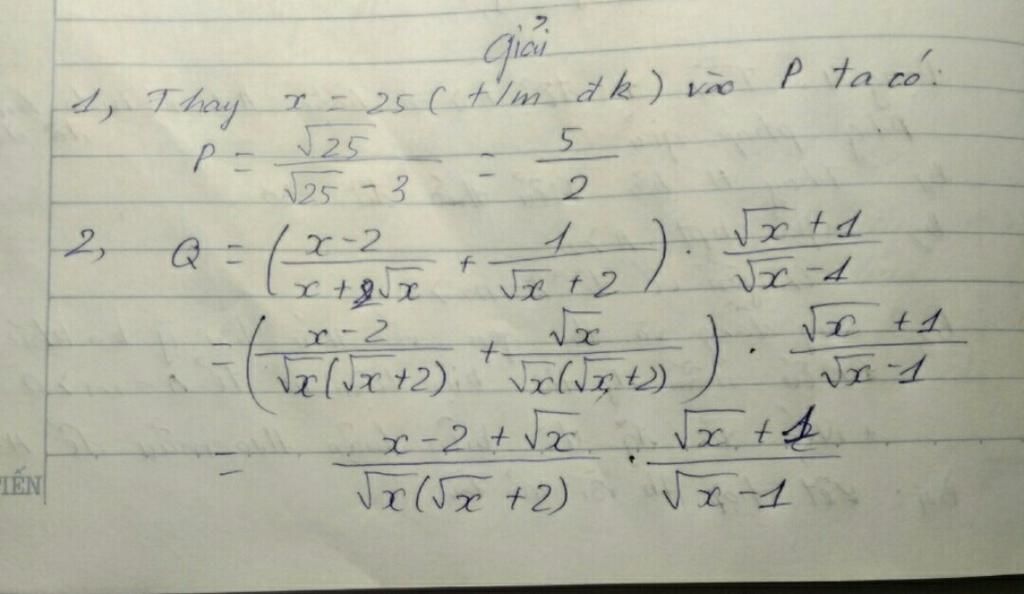 Giải
1, Thay x = 25 (t/m đk) vào P ta có:
P = √25 / (√25 - 3) = 5/2
2, Q = ((x-2)/(x+2√x) + 1/(√x+2)) · (√x+1)/(√x-1)
= ((x-2)/(√x(√x+2)) + √x/(√x(√x+2))) · (√x+1)/(√x-1)
= (x-2+√x)/(√x(√x+2)) · (√x+1)/(√x-1)
IẾN